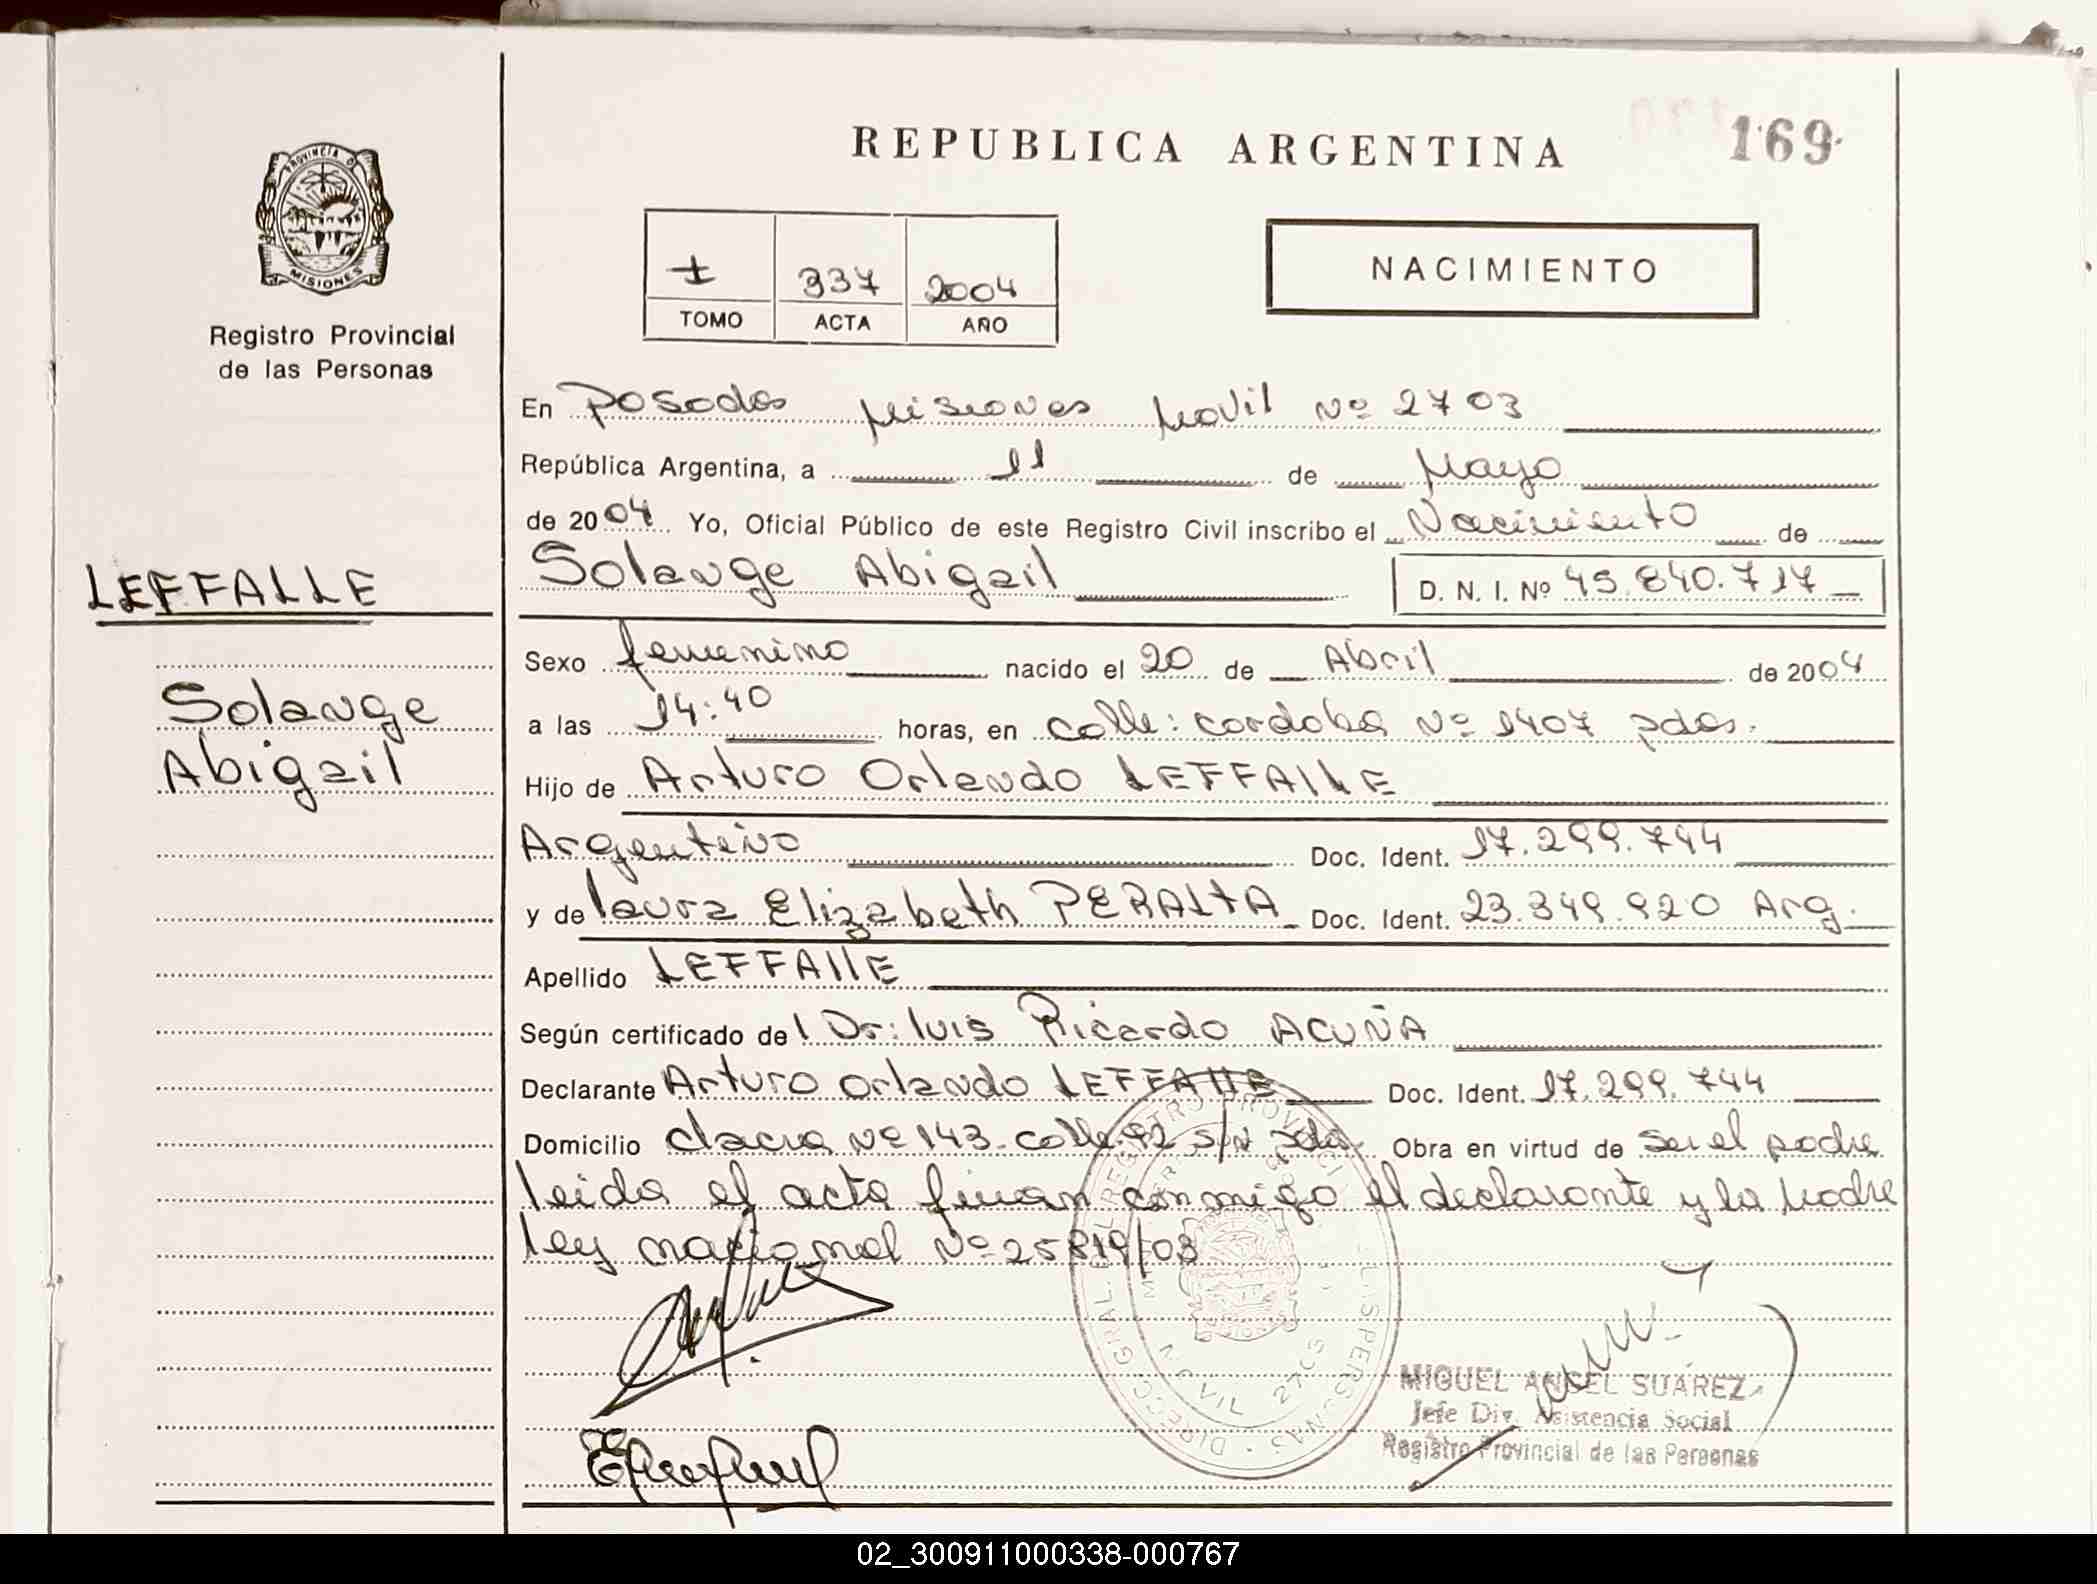 REPUBLICA ARGENTINA
169
PROVINCIA D
MISIONES
Registro Provincial
de las Personas
I 337 2004
TOMO ACTA AÑO
NACIMIENTO
En Posadas Misiones Movil Nº 2703
República Argentina, a 11 de Mayo
de 2004 Yo, Oficial Público de este Registro Civil inscribo el Nacimiento de
Solange Abigail D. N. I. Nº 45.840.717
LEFFALLE
Solange
Abigail
Sexo femenino nacido el 20 de Abril de 2004
a las 14:40 horas, en calle: cordoba Nº 1407 pdas.
Hijo de Arturo Orlando LEFFALLE
Argentino Doc. Ident. 17.299.744
y de Laura Elizabeth PERALTA Doc. Ident. 23.349.920 Arg.
Apellido LEFFALLE
Según certificado del Dr: Luis Ricardo ACUÑA
Declarante Arturo Orlando LEFFALLE Doc. Ident. 17.299.744
Domicilio chacra Nº 143 - calle 92 s/n pdas. Obra en virtud de ser el padre
leida el acta firman conmigo el declarante y la Madre
ley nacional Nº 25819/03
DIRECC. GRAL. EL REGISTRO PROVINCIAL PERSONAS
MOVIL 2703
MIGUEL ANGEL SUAREZ
Jefe Div. Asistencia Social
Registro Provincial de las Personas
02_300911000338-000767